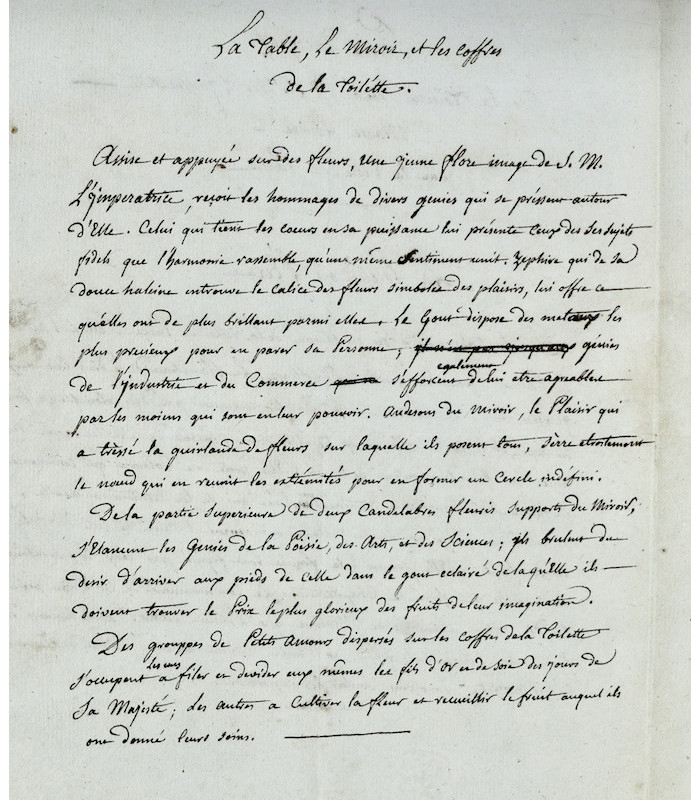 La Table, Le Miroir, et les coffres
de la Toilétte.
Assise et appuyée sur des fleurs, Une jeune flore image de S. M.
L'jmperatrice, reçoit les hommages de divers genies qui se pressent autour
d'Elle. Celui qui tient les coeurs en sa puissance lui présente Ceux des Ses Sujets
fidels que l'harmonie rassemble, qu'une même Sentiment unit. Zephire qui de sa
douce haleine entrouve le calice des fleurs simboles des plaisirs, lui offre ce
qu'elles ont de plus brillant parmi elles. Le Gout dispose des metaux les
plus precieux pour en parer sa Personne; génies
de l'jndustrie et du Commerce s'efforcent également de lui etre agreables
par les moiens qui sont en leur pouvoir. Audesous du Miroir, le Plaisir qui
a trèssé la guirlande de fleurs sur laquelle ils posent tous, Sèrre etroitement
le nœud qui en reunit les extrémités pour en former un Cercle indéfini.
De la partie Superieure de deux Candelabres fleuris supports du Miroir,
s'Elancent les Genies de la Poësie, des Arts, et des Sciences; jls brulent du
desir d'arriver aux pieds de celle dans le gout eclairé de la qu'Elle ils
doivent trouver le Prix le plus glorieux des fruits de leur imagination.
Des grouppes de Petits Amours dispersés sur les coffres de la Toilette
s'occupent les uns a filer et devider eux mêmes les fils d'Or et de Soie des jours de
Sa Majesté; des autres a Cultiver la fleur et recueillir le fruit auquel ils
ont donné leurs soins.